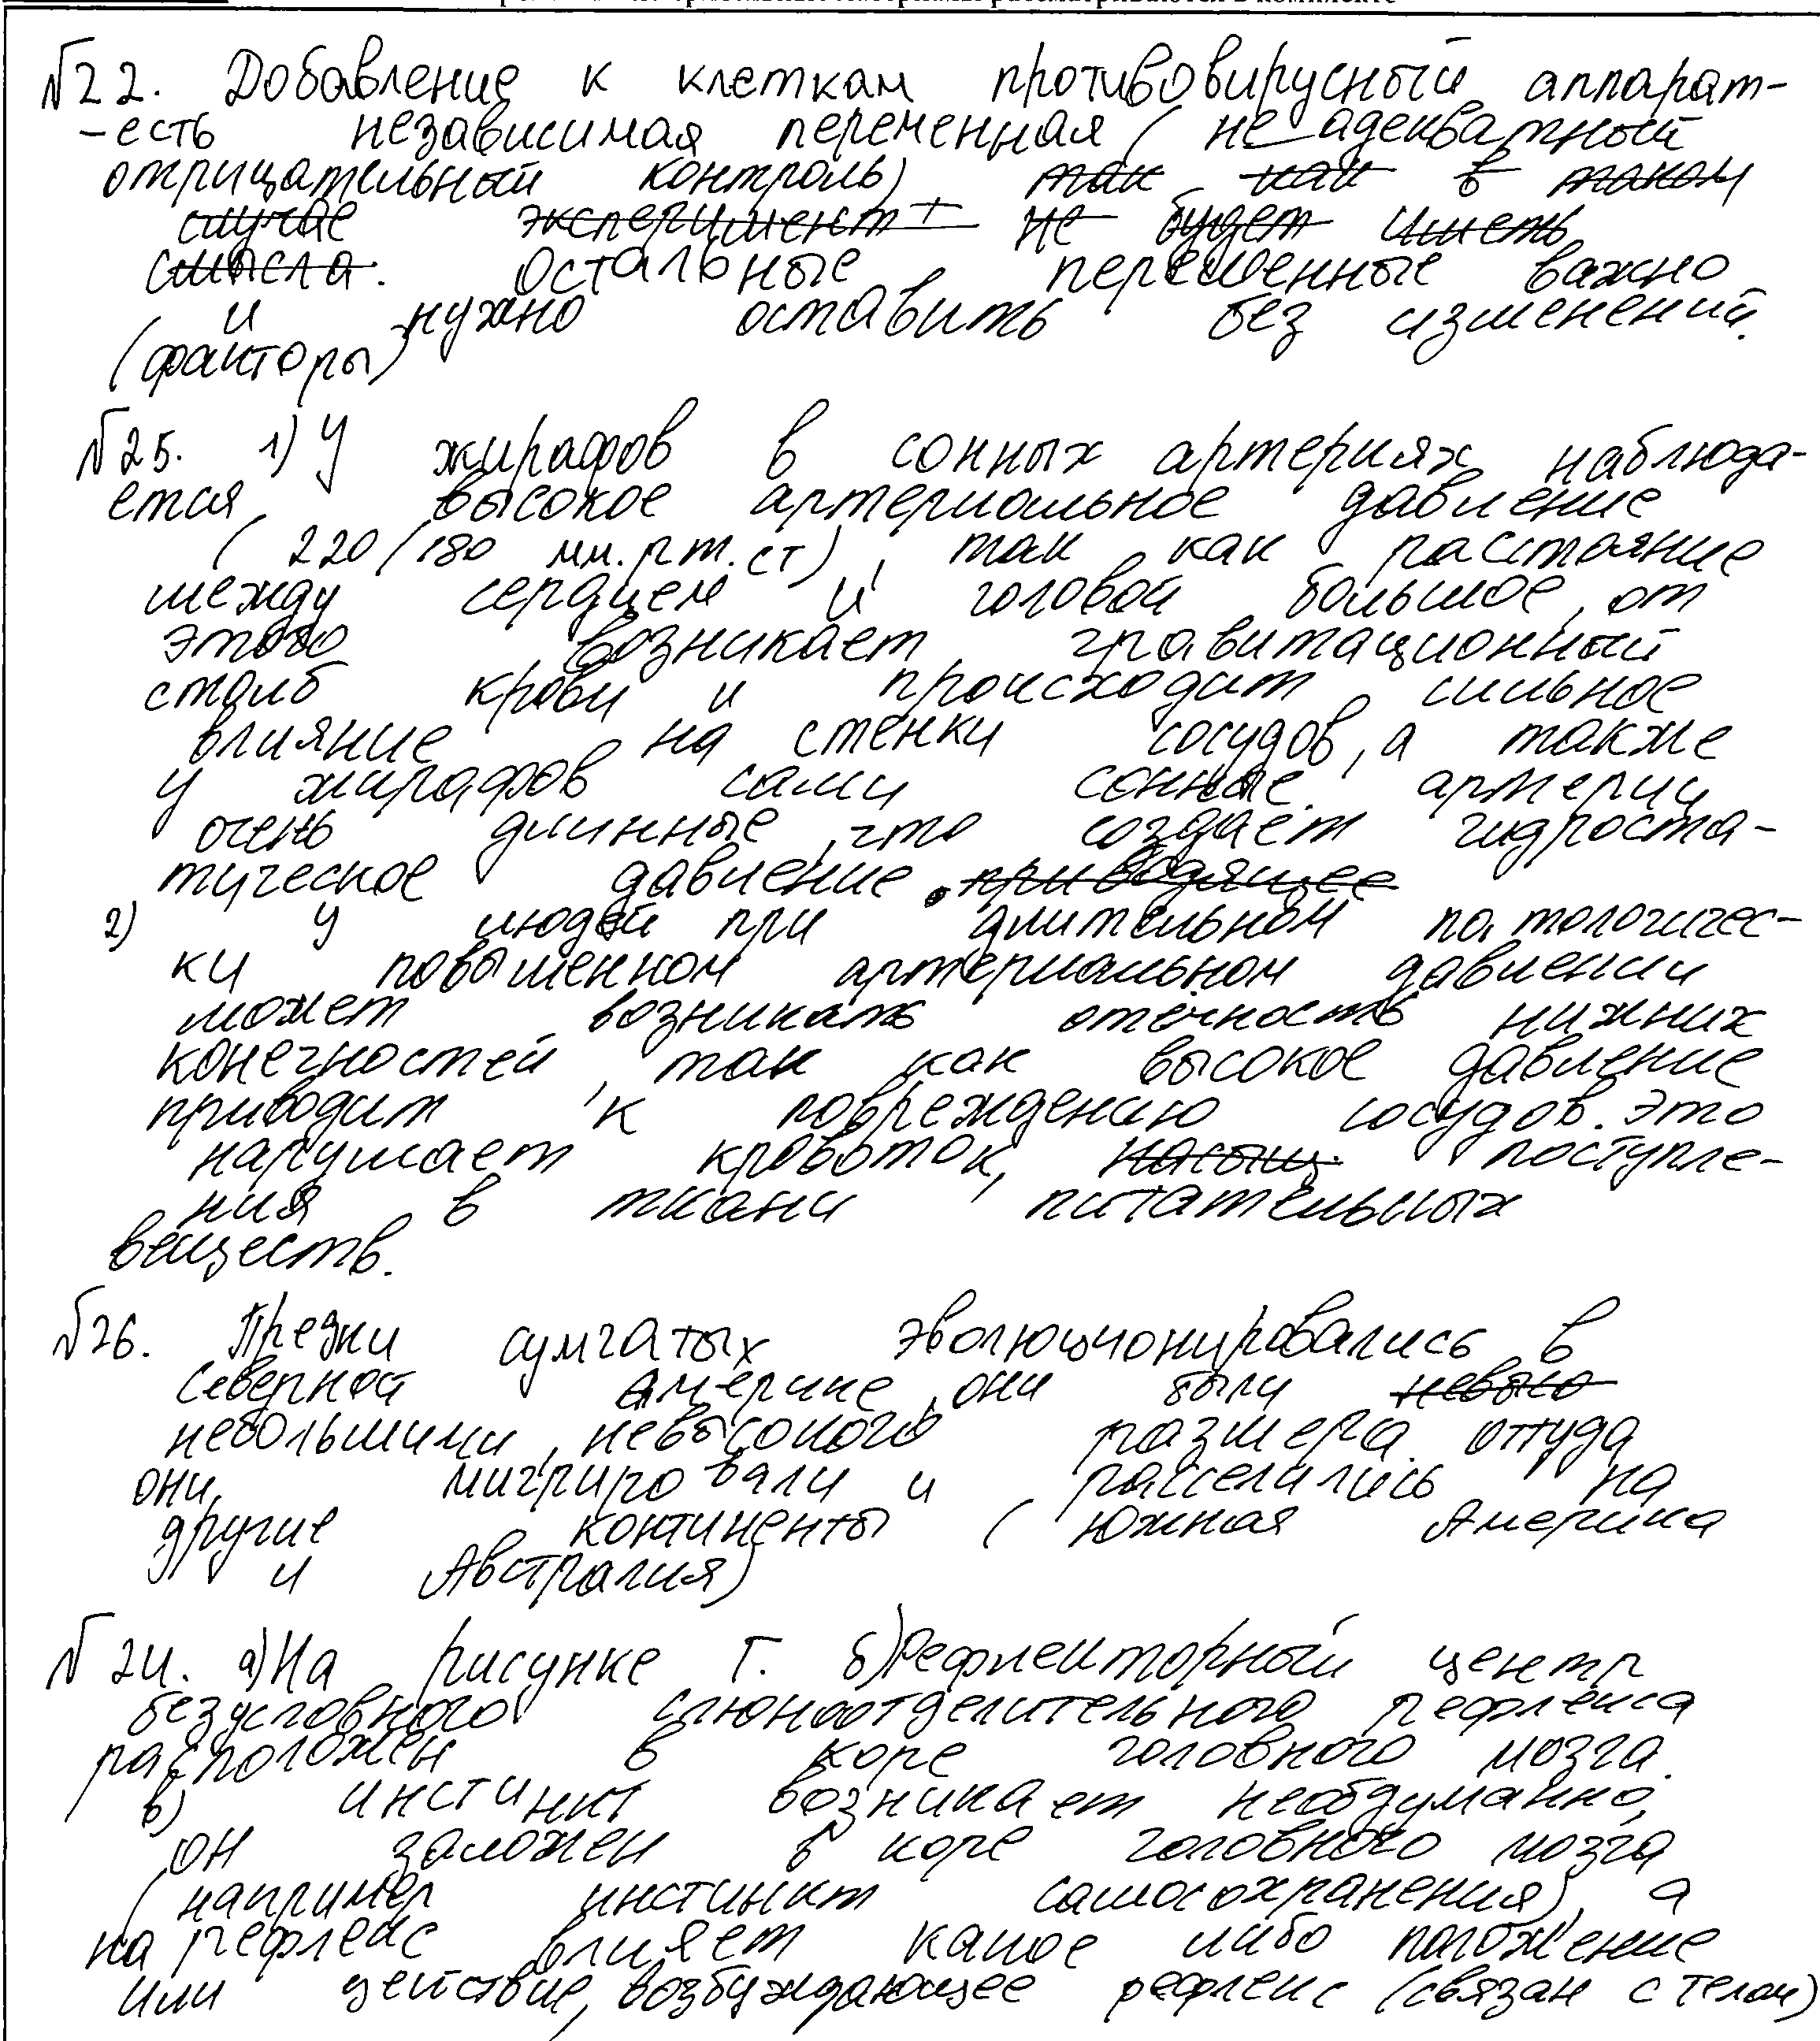 №22. Добавление к клеткам противовирусный аппарат-
-есть независимая переменная (не адекватный
отрицательный контроль) так как в таком
случае эксперимент не будет иметь
смысла. Остальные переменные важно
и нужно оставить без изменений.
(факторы)
№25. 1) У жирафов в сонных артериях наблюда-
ется высокое артериальное давление
(220/180 мм.рт.ст), так как расстояние
между сердцем и головой большое, от
этого возникает гравитационный
столб крови и происходит сильное
влияние на стенки сосудов, а также
у жирафов сами сонные артерии
очень длинные, что создает гидроста-
тическое давление. приводящее
2) У людей при длительном патологичес-
ки повышенном артериальном давлении
может возникать отёчность нижних
конечностей, так как высокое давление
приводит к повреждению сосудов. Это
нарушает кровоток, насыщ. поступле-
ния в ткани питательных
веществ.
№26. Предки сумчатых эволюционировались в
Северной Америке, они были невысо
небольшими, невысокого размера. оттуда
они мигрировали и расселились на
другие континенты (Южная Америка
и Австралия)
№24. а) На рисунке Г. б) Рефлекторный центр
безусловного слюноотделительного рефлекса
расположен в коре головного мозга.
в) инстинкт возникает необдуманно,
он заложен в коре головного мозга
(например инстинкт самосохранения), а
на рефлекс влияет какое либо положение
или действие, возбуждающее рефлекс (связан с телом)